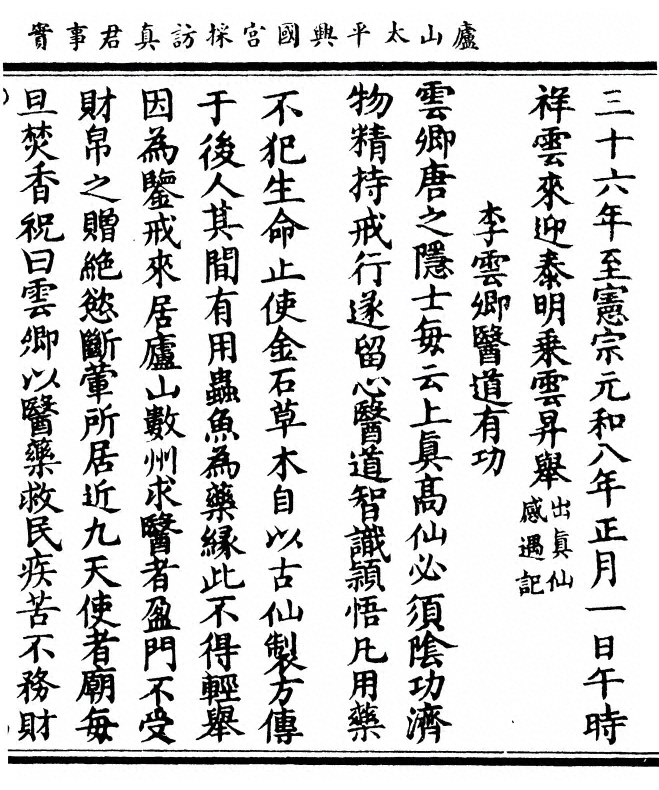 廬山太平興國宮採訪真君事實
三十六年至憲宗元和八年正月一日午時
祥雲來迎泰明乘雲昇舉出眞仙
感遇記
李雲卿醫道有功
雲卿唐之隱士每云上眞高仙必須陰功濟
物精持戒行遂留心醫道智識頴悟凡用藥
不犯生命止使金石草木自以古仙製方傳
于後人其間有用蟲魚為藥緣此不得輕舉
因為鑒戒來居廬山數州求醫者盈門不受
財帛之贈絶慾斷葷所居近九天使者廟每
旦焚香祝曰雲卿以醫藥救民疾苦不務財